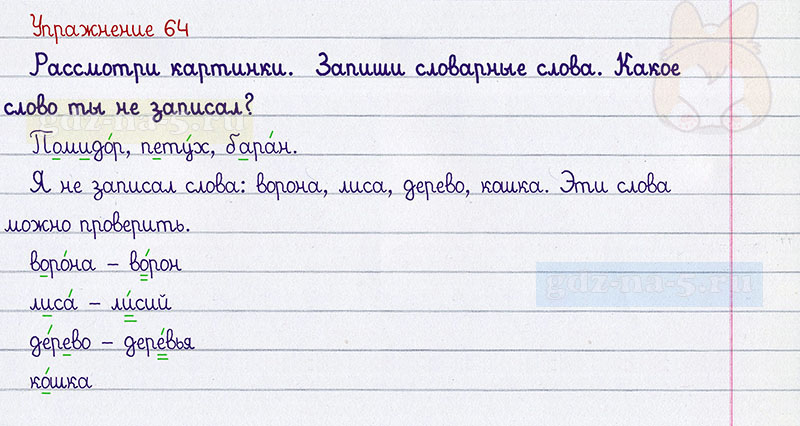 Упражнение 64
Рассмотри картинки. Запиши словарные слова. Какое
слово ты не записал?
gdz-na-5.ru
Помидо́р, пету́х, бара́н.
Я не записал слова: ворона, лиса, дерево, кошка. Эти слова
можно проверить.
воро́на – во́рон
gdz-na-5.ru
лиса́ – ли́сий
де́рево – дере́вья
ко́шка